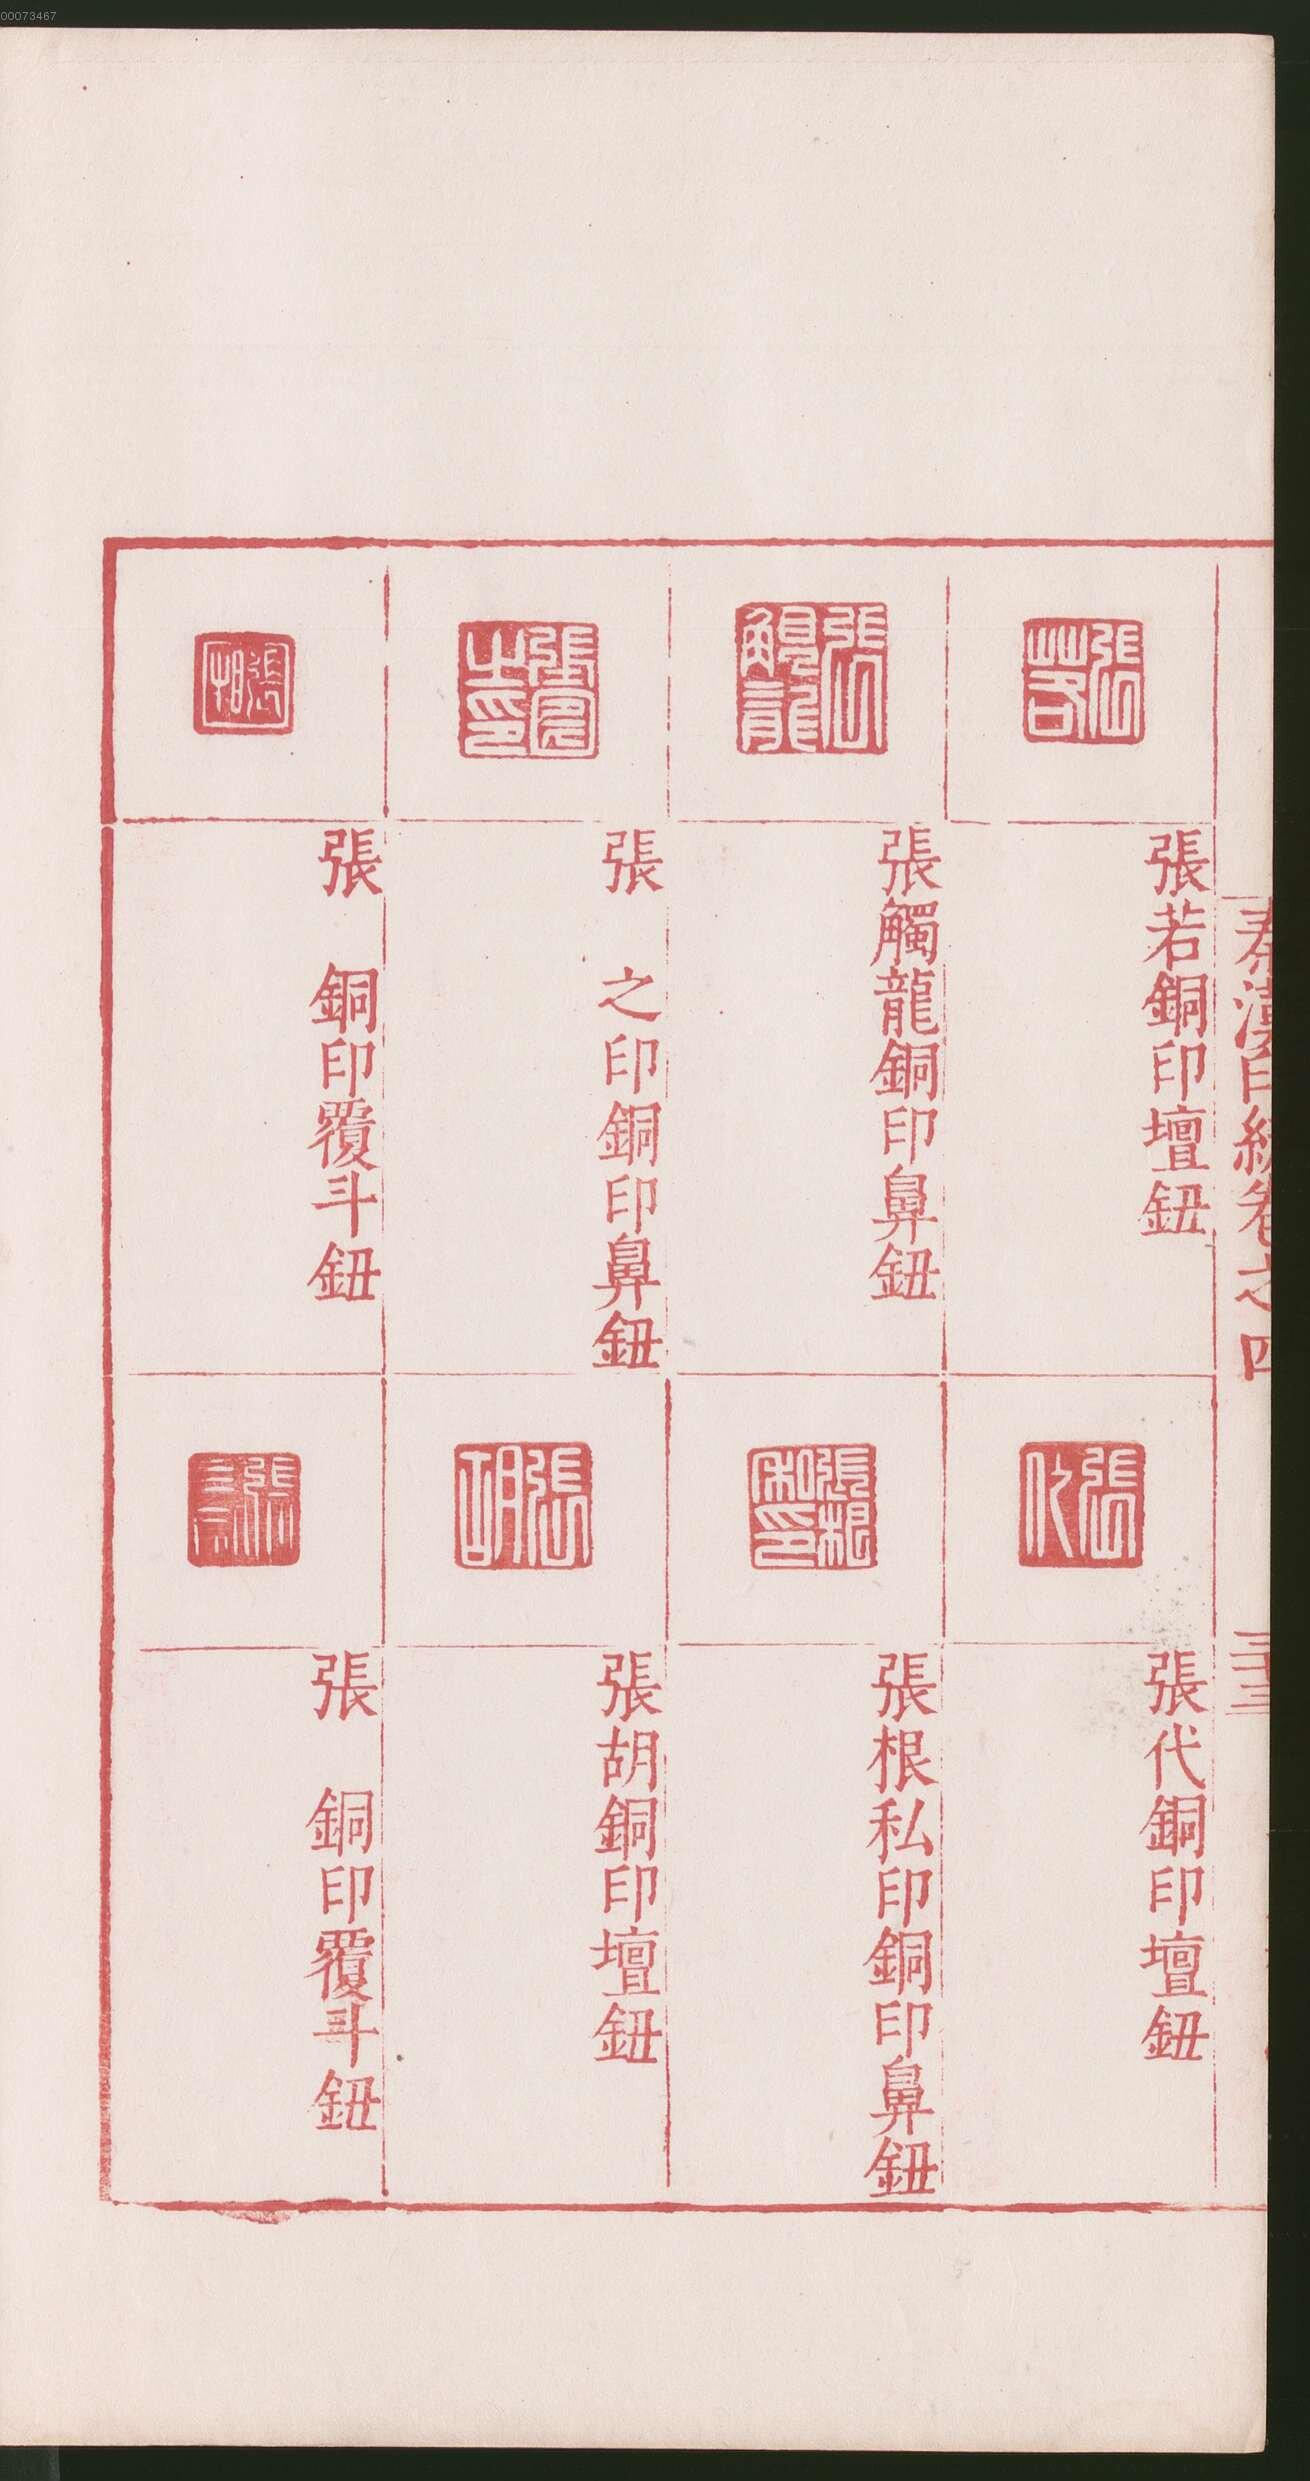 00073467
秦漢印統卷之四
三十三
張若銅印壇鈕
張觸龍銅印鼻鈕
張 之印銅印鼻鈕
張 銅印覆斗鈕
張代銅印壇鈕
張根私印銅印鼻鈕
張胡銅印壇鈕
張 銅印覆斗鈕
張若
張觸龍
張代
張根私印
張胡